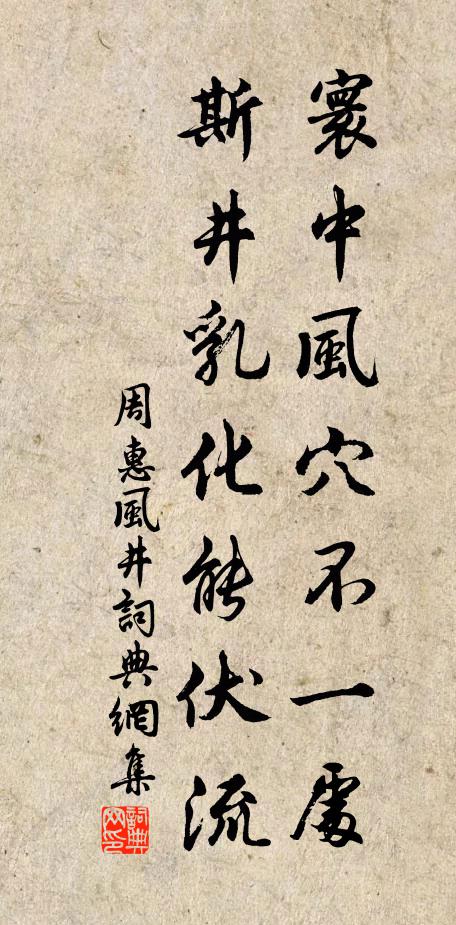 寰中風穴不一處
斯井乳化能伏流
周惠風井詞典網集
詞典網印